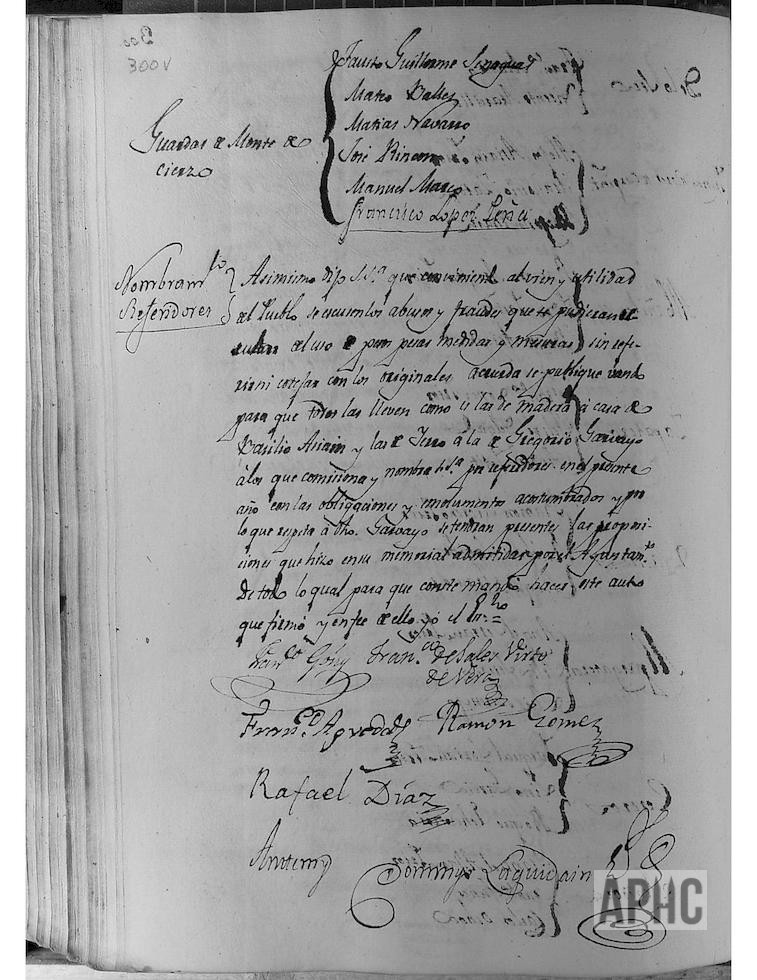 300
300v
Guardas de Monte de
cierzo
Fausto Guillermo
Mateo Valles
Matias Navarro
José Rincon
Manuel Marco
Francisco Lopez Peña
Nombramto
Referidores
Asimismo dijo S.Sa que combiniente al vien y utilidad
del Pueblo se escusen los abusos y fraudes que se pudieran
del uso de pesas medidas y mesuras sin refe-
rir ni cotejar con los originales acuerda se publique vando
para que todos las lleven como es las de madera á casa de
Basilio Asiain y las de Ierro á la de Gregorio Garvayo
á los que comisiona y nombra S.Sa por refridores en el presente
año con las obligaciones y emolumentos acostumbrados y por
lo que respeta á dho. Garvayo se tendran presentes las proposi-
ciones que hizo en su memorial admitidas por el Ayuntamto
De todo lo qual para que conste mandó hacer este auto
que firmó y en fee de ello yó el Srio =
Franco Goñy Franco de Sales Virto
de Vera
Franco Ramon Gómez
Rafael Díaz
Antemy
Laquidain
APHC